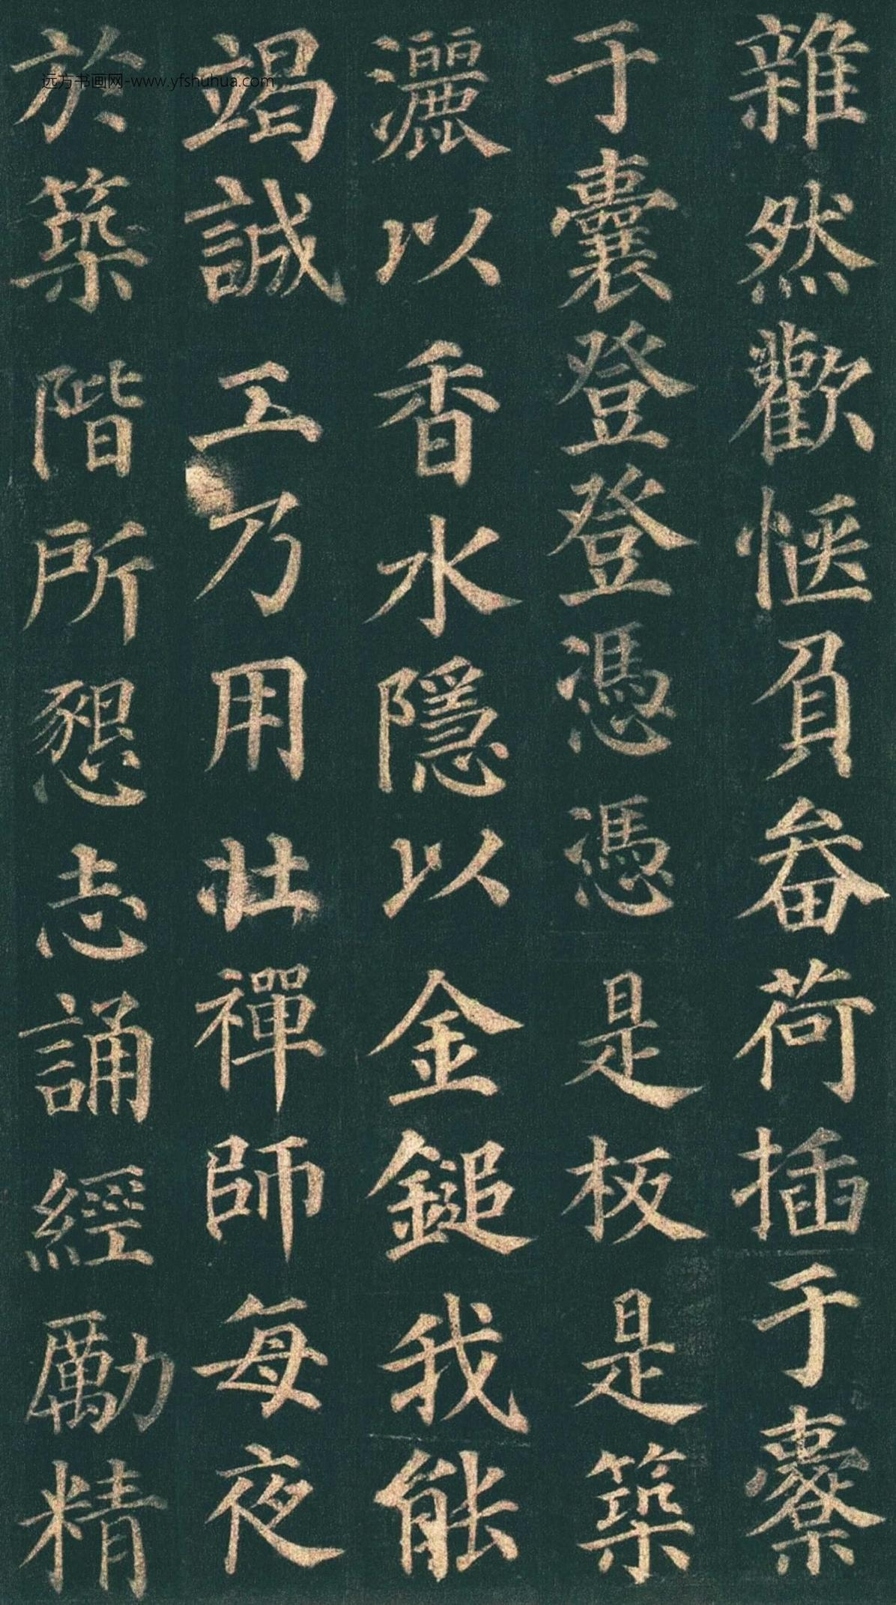 雜然歡愜負畚荷插于橐
于囊登登憑憑是板是築
灑以香水隱以金鎚我能
竭誠工乃用壯禪師每夜
於築階所懇志誦經勵精
远方书画网-www.yfshuhua.com